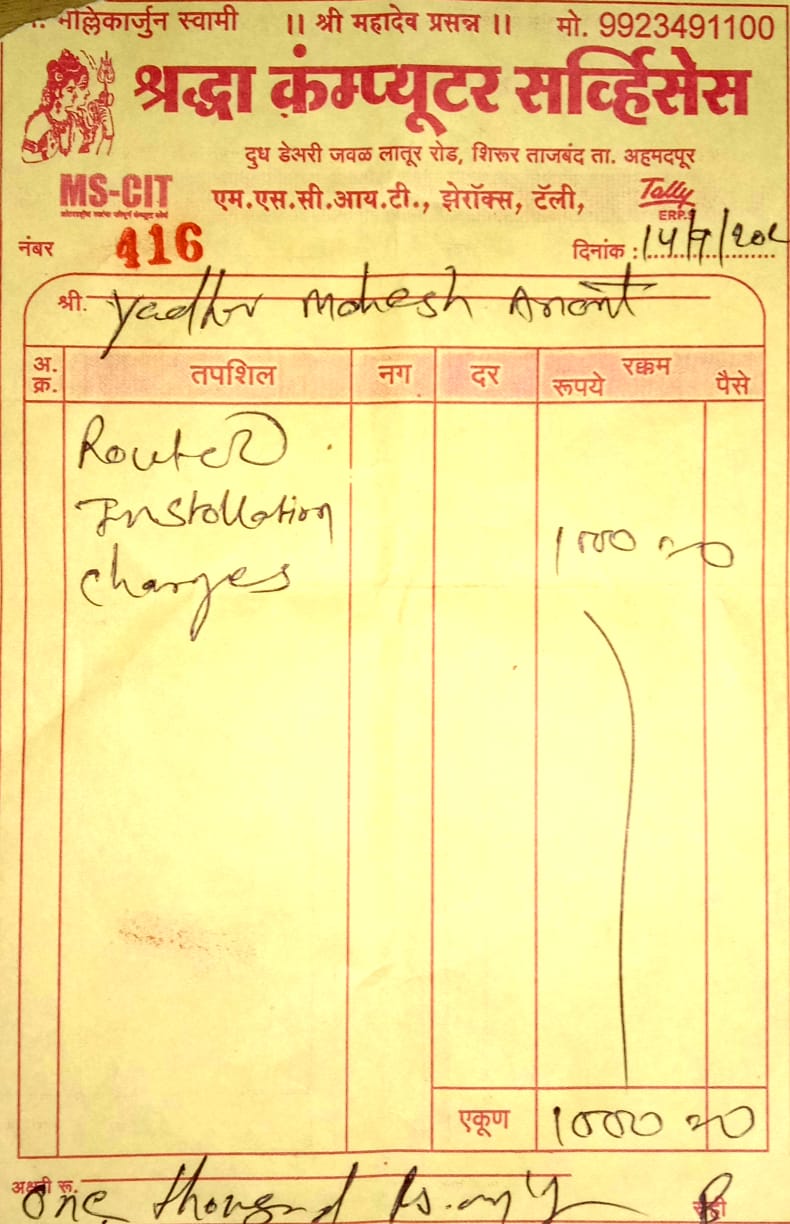 मल्लिकार्जुन स्वामी || श्री महादेव प्रसन्न || मो. 9923491100
श्रद्धा कंम्प्यूटर सर्व्हिसेस
दुध डेअरी जवळ लातूर रोड, शिरूर ताजबंद ता. अहमदपूर
MS-CIT एम.एस.सी.आय.टी., झेरॉक्स, टॅली, Tally
ERP.9
नंबर 416 दिनांक : 14/9/202
श्री. Yadhv Mahesh Anant
अ. क्र. तपशिल नग दर रक्कम
रूपये पैसे
Router
Installation
charges 1000 00
एकूण 1000 00
अक्षरी रू. One thousand Rs. only सही